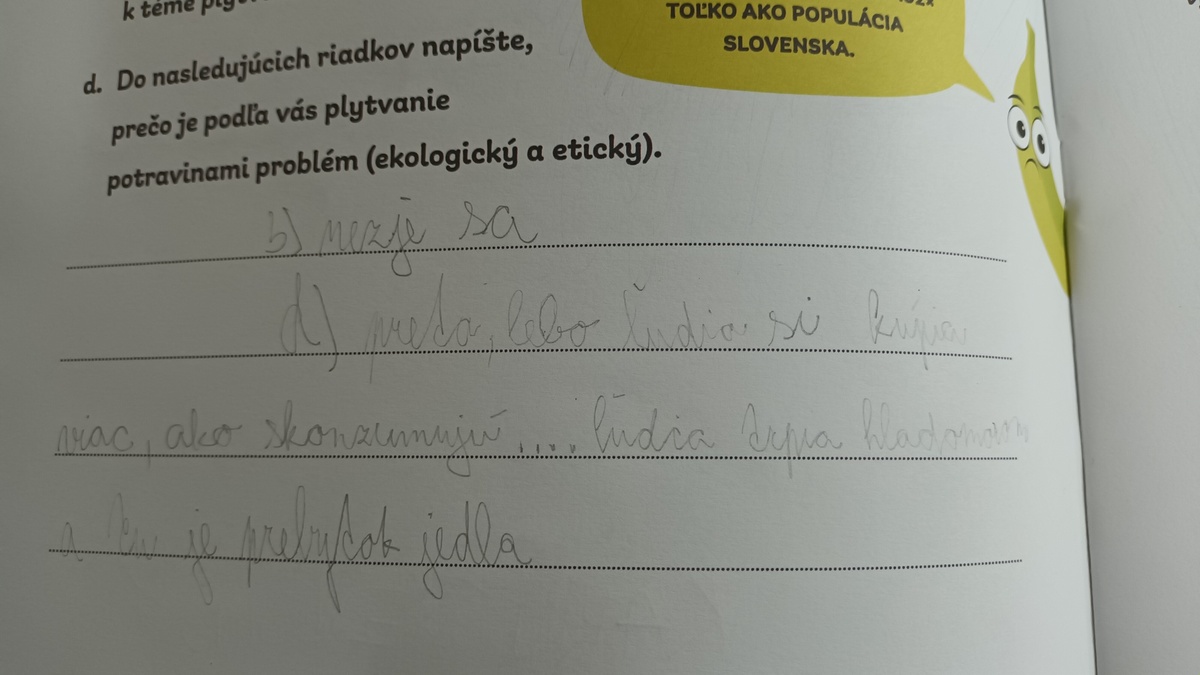 k téme
TOĽKO AKO POPULÁCIA
SLOVENSKA.
d. Do nasledujúcich riadkov napíšte,
prečo je podľa vás plytvanie
potravinami problém (ekologický a etický).
b) nezje sa
d) preto, lebo ľudia si kúpia
viac, ako skonzumujú .... ľudia trpia hladomorom
a tu je prebytok jedla